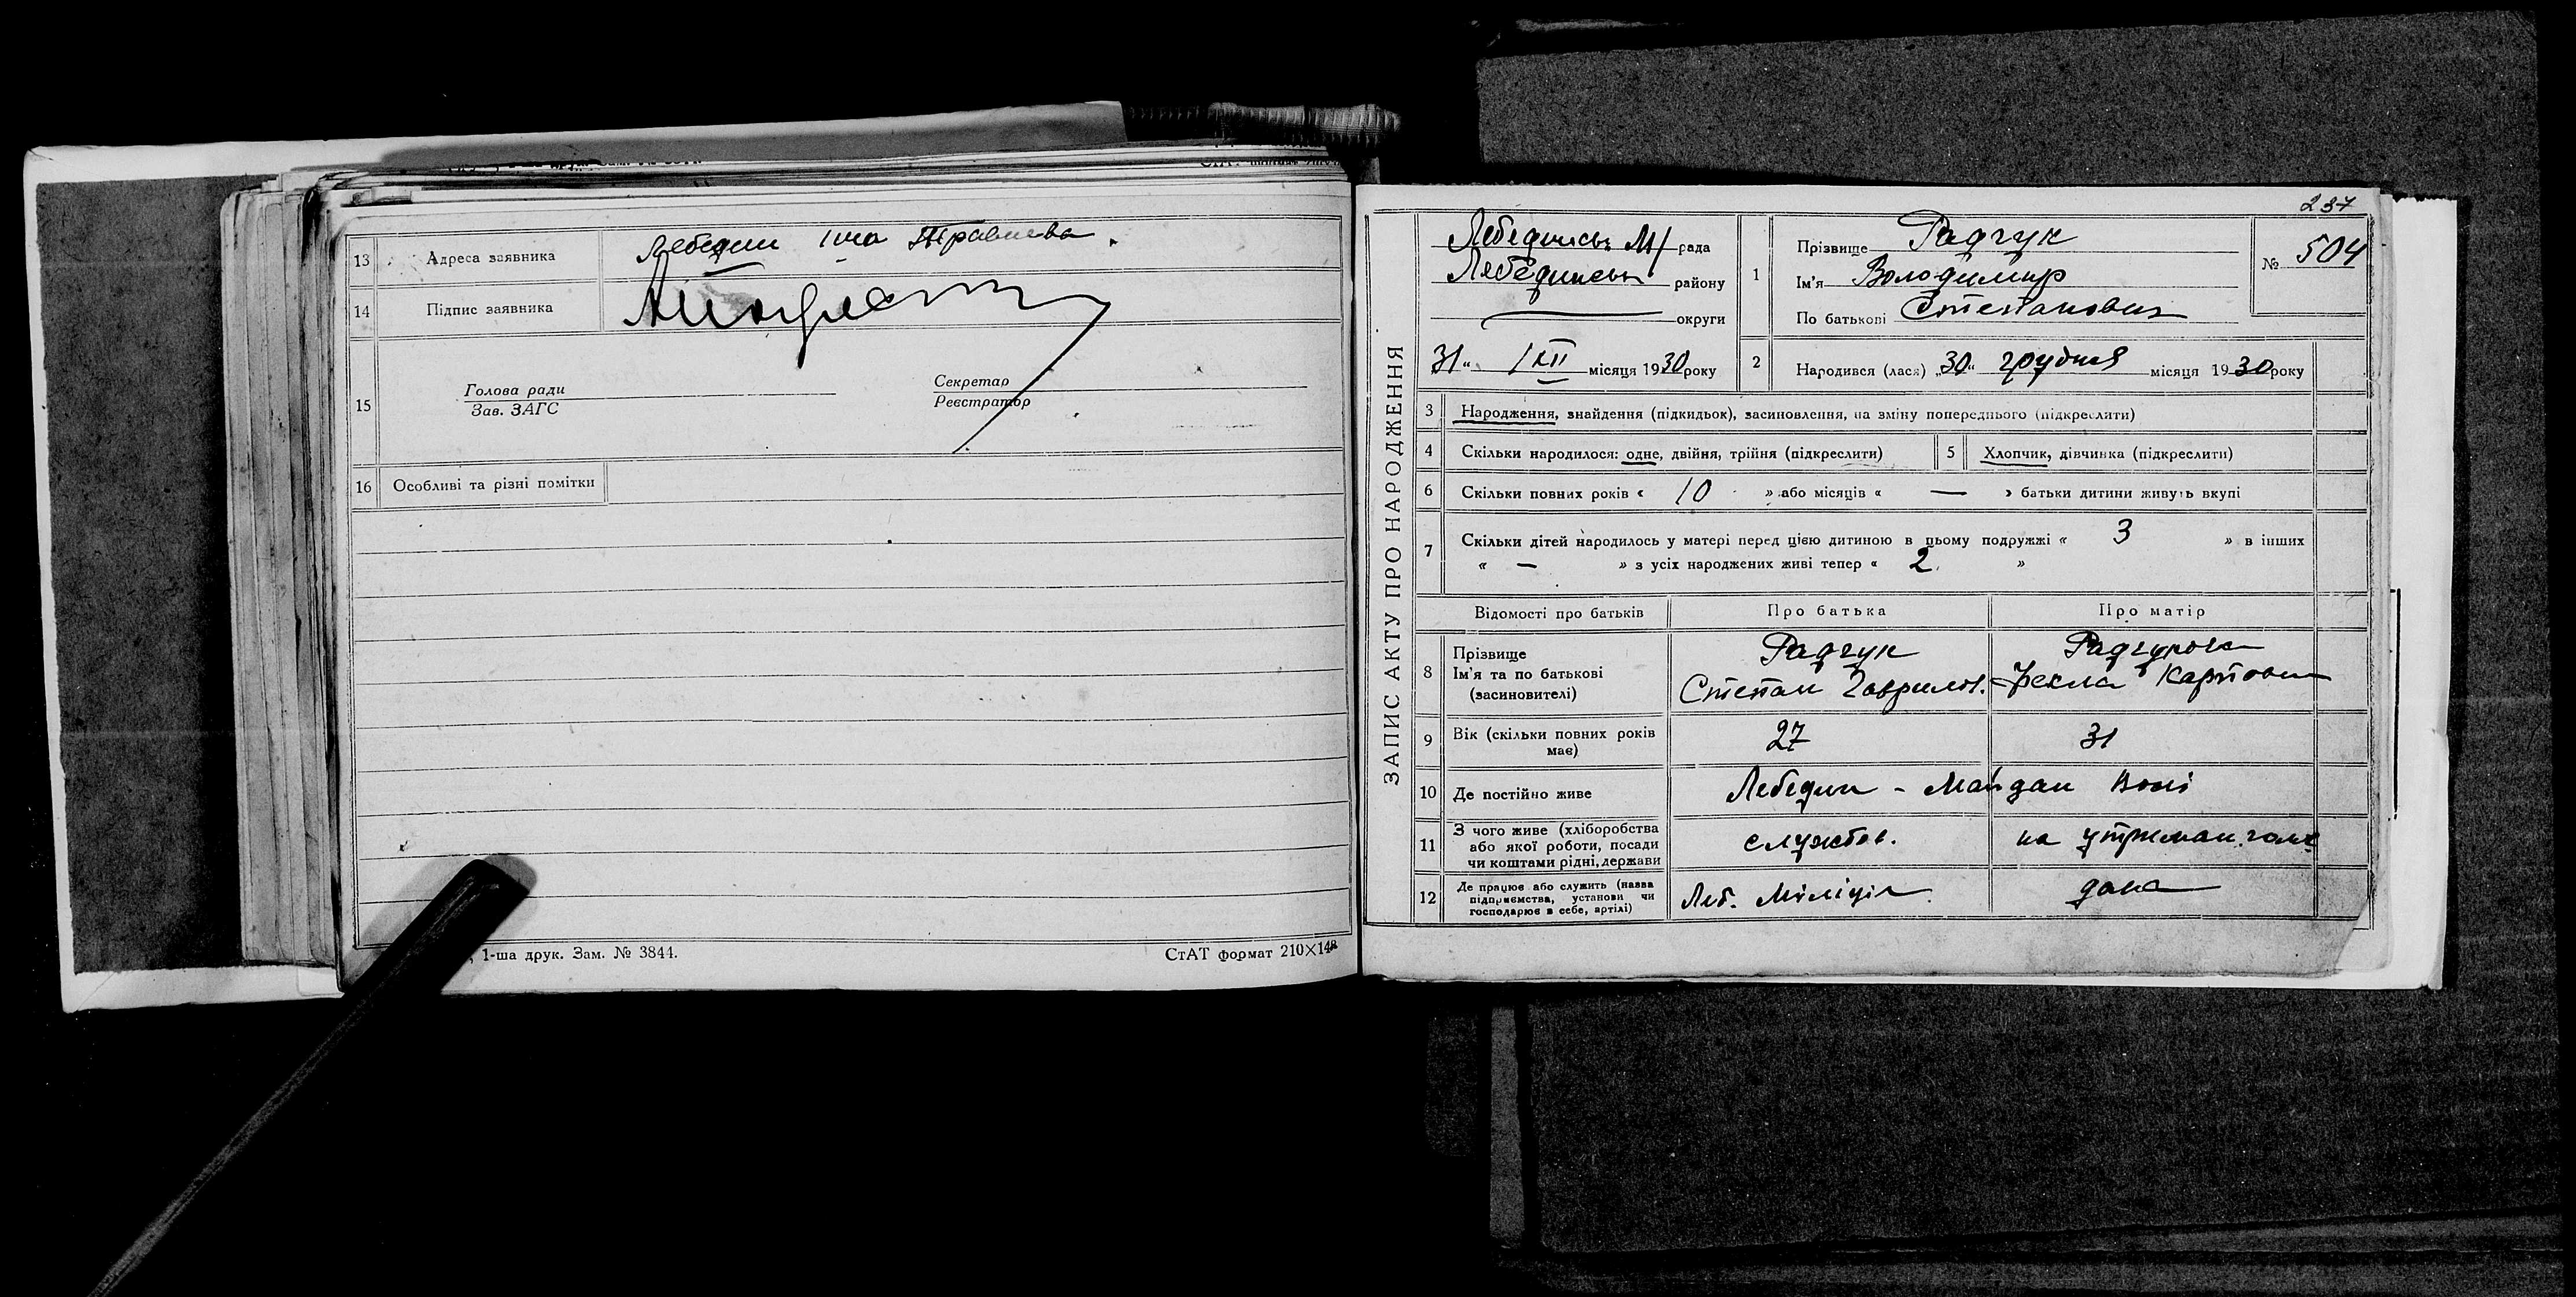 13 Адреса заявника Лебедин 1ша Травнева.
14 Підпис заявника
15 Голова ради
Зав. ЗАГС
Секретар
Реєстратор
16 Особливі та різні помітки
1-ша друк. Зам. № 3844.
СтАТ формат 210×148
237
ЗАПИС АКТУ ПРО НАРОДЖЕННЯ
Лебединськ М/ рада
Лебединськ району
округи
31 " XII місяця 1930 року
1 Прізвище Радчук
Ім'я Володимир
По батькові Степанович
№ 504
2 Народився (лася) „30" грудня місяця 1930 року
3 Народження, знайдення (підкидьок), засиновлення, на зміну попереднього (підкреслити)
4 Скільки народилося: одне, двійня, трійня (підкреслити)
5 Хлопчик, дівчинка (підкреслити)
6 Скільки повних років « 10 » або місяців « — » батьки дитини живуть вкупі
7 Скільки дітей народилось у матері перед цією дитиною в цьому подружжі « 3 » в інших
« — » з усіх народжених живі тепер « 2 »
Відомості про батьків Про батька Про матір
8 Прізвище
Ім'я та по батькові
(засиновителі)
Радчук
Степан Гаврилов.
Радчукова
Фекла Карповна
9 Вік (скільки повних років
має)
27
31
10 Де постійно живе Лебедин - Майдан Волі
11 З чого живе (хліборобства
або якої роботи, посади
чи коштами рідні, держави
службов.
на утриман. чолов
12 Де працює або служить (назва
підприємства, установи чи
господарює в себе, артілі)
Леб. Міліція